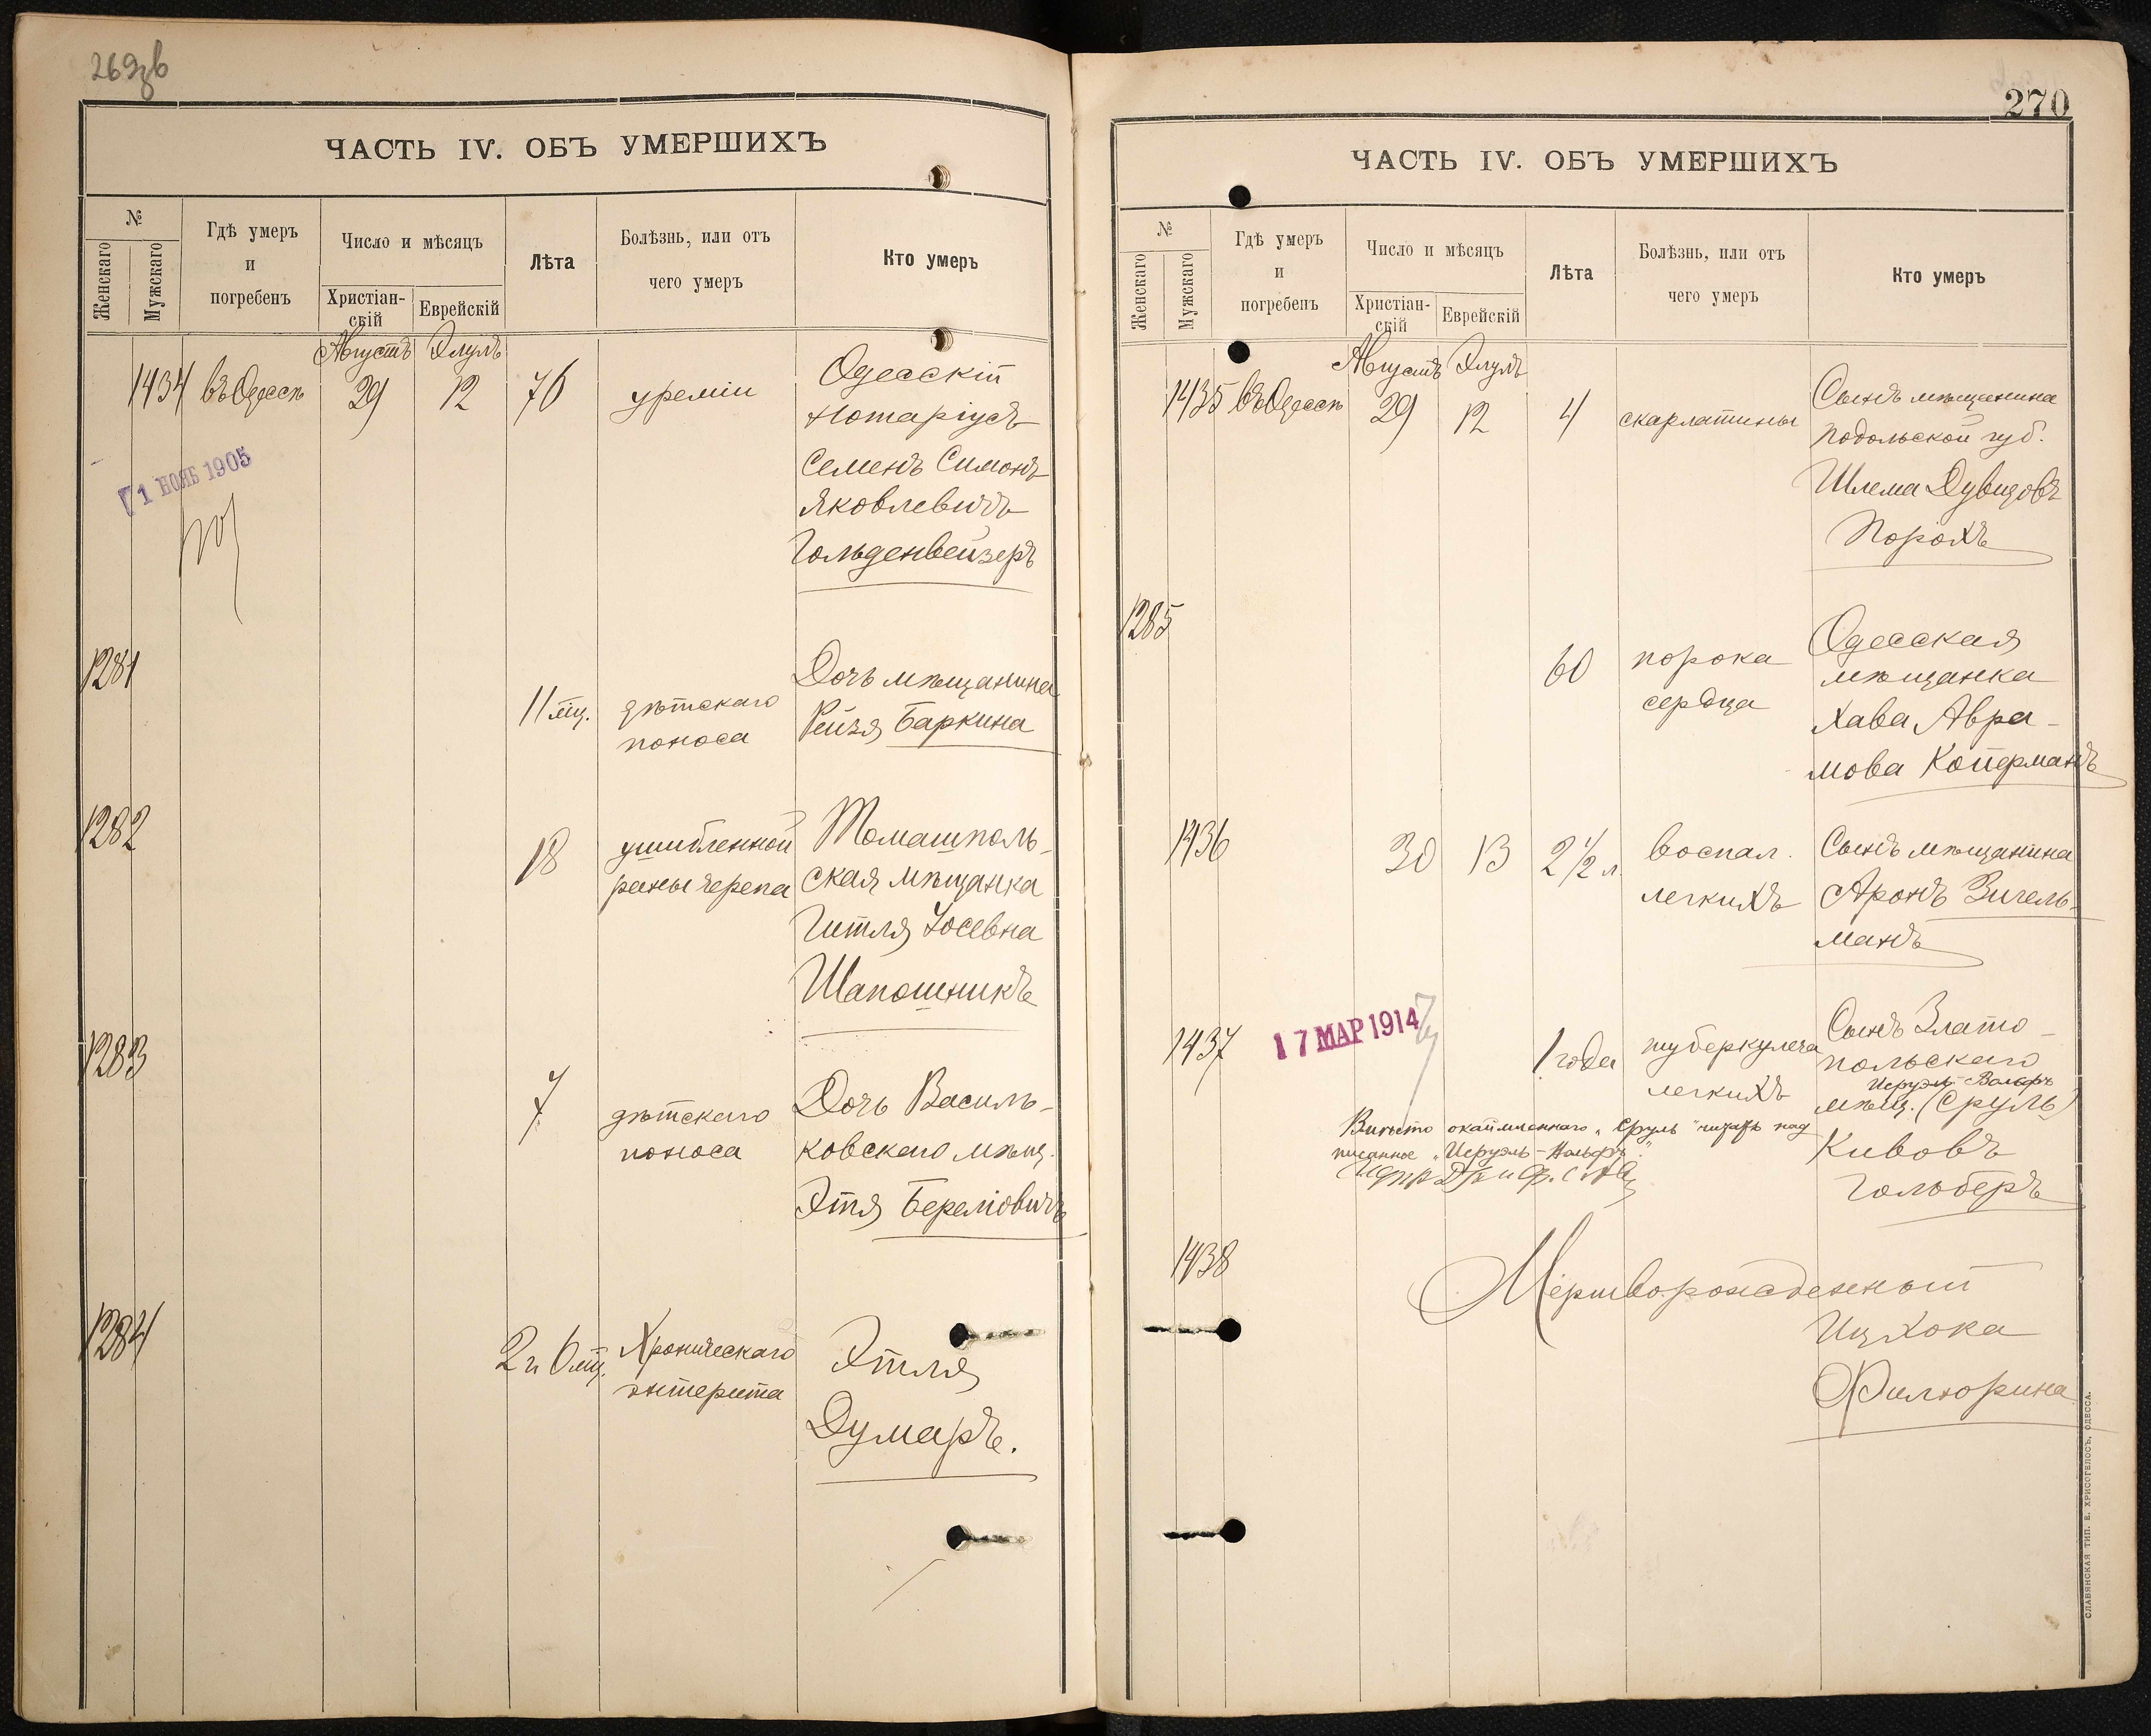 269
ЧАСТЬ IV. ОБЪ УМЕРШИХЪ
№
Женскаго
Мужскаго
Гдѣ умеръ
и
погребенъ
Число и мѣсяцъ
Христіан-
скій
Еврейскій
Лѣта
Болѣзнь, или отъ
чего умеръ
Кто умеръ
Августъ Элулъ
1434 въ Одессѣ 29 12 76 уреміи
Одесскій
Нотаріусъ
Семенъ Симонъ
Яковлевичъ
Гольденвейзеръ
1 НОЯБ 1905
1281
11 мц. дѣтскаго
поноса
Дочь мѣщанина
Рейзя Баркина
1282
18 ушибленной
раны черепа
Томашполь-
ская мѣщанка
Гитля Іосевна
Шапошникъ
1283
7 дѣтскаго
поноса
Дочь Василь-
ковскаго мѣщ.
Этя Беремовичъ
1284
2 г. 6 мц. Хроническаго
энтерита
Этля
Думаръ.
270
ЧАСТЬ IV. ОБЪ УМЕРШИХЪ
№
Женскаго
Мужскаго
Гдѣ умеръ
и
погребенъ
Число и мѣсяцъ
Христіан-
скій
Еврейскій
Лѣта
Болѣзнь, или отъ
чего умеръ
Кто умеръ
Августъ Элулъ
1435 въ Одессѣ 29 12 4 скарлатины
Сынъ мѣщанина
Подольской губ.
Шлема Дувидовъ
Порохъ
1285
60 порока
сердца
Одесская
мѣщанка
Хава Авра-
мова Коперманъ
1436 30 13 2 1/2 л. воспал.
легкихъ
Сынъ мѣщанина
Аронъ Зигель-
манъ
1437
17 МАР 1914
1 года туберкулеза
легкихъ
Сынъ Злато-
польскаго
Исруэль-Вольфъ
мѣщ. (Сруль)
Кивовъ
Гольберъ
Вмѣсто окаймленнаго "Сруль" читать над
писанное "Исруэль-Вольфъ".
1438
Мертворожденный
Ицхока
Филюрина
СЛАВЯНСКАЯ ТИП. Е. ХРИСОГЕЛОСЪ, ОДЕССА.